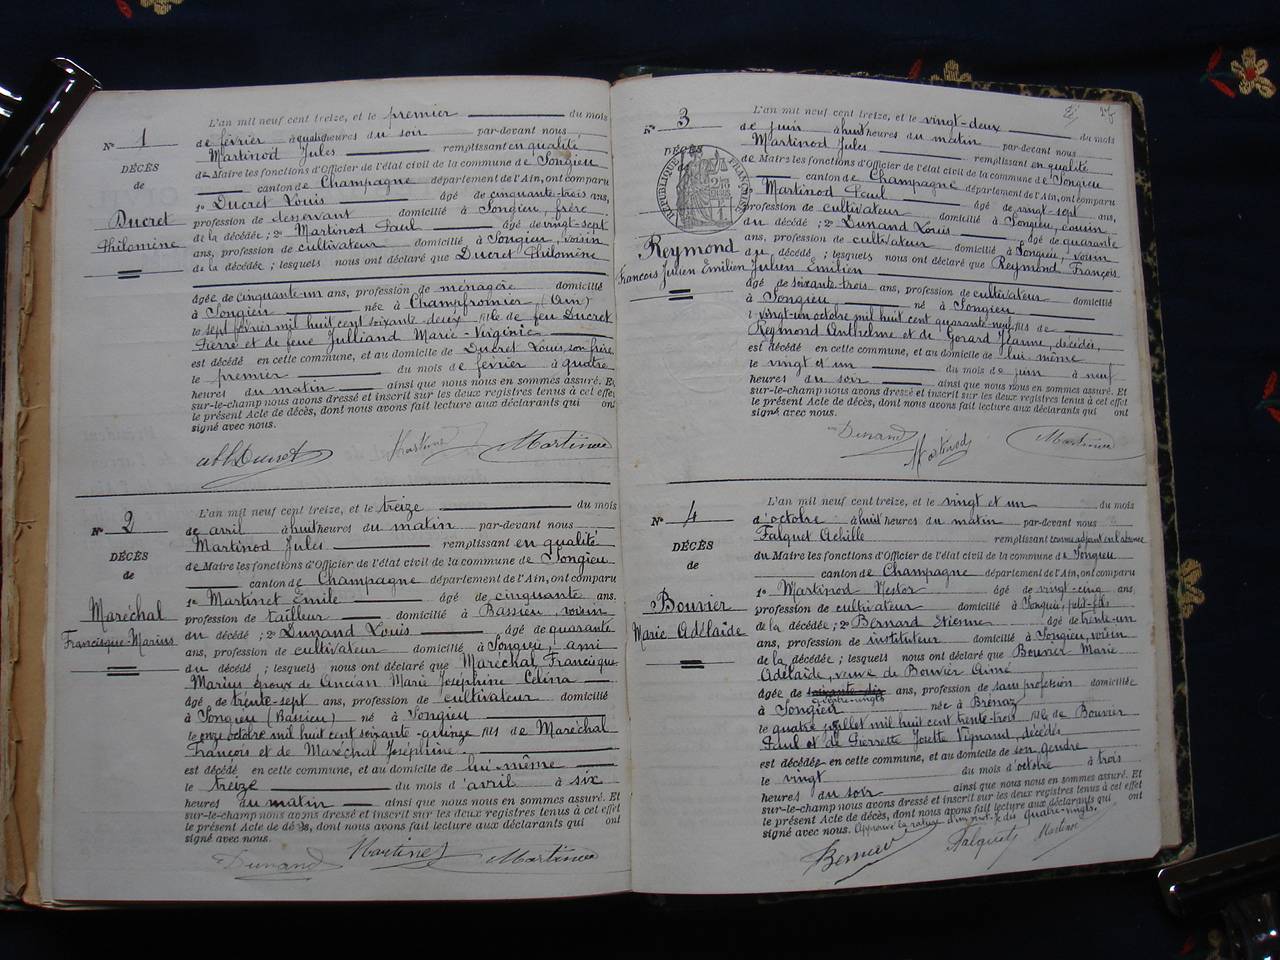 L'an mil neuf cent treize, et le premier du mois
N° 1
de février à quatre heures du soir par-devant nous
Martinod Jules remplissant en qualité
DÉCÈS
de Maire les fonctions d'Officier de l'état civil de la commune de Songieu
de
canton de Champagne département de l'Ain, ont comparu
1° Ducret Louis âgé de cinquante-trois ans,
Ducret
profession de desservant domicilié à Songieu, frère
Philomène
de la décédée ; 2° Martinod Paul âgé de vingt-sept
ans, profession de cultivateur domicilié à Songieu, voisin
de la décédée ; lesquels nous ont déclaré que Ducret Philomène
âgée de cinquante-un ans, profession de ménagère domicilié
à Songieu née à Champfromier (Ain)
le sept février mil huit cent soixante-deux fille de feu Ducret
Pierre et de feue Julliand Marie-Virginie
est décédé en cette commune, et au domicile de Ducret Louis, son frère
le premier du mois de février à quatre
heures du matin ainsi que nous nous en sommes assuré. Et
sur-le-champ nous avons dressé et inscrit sur les deux registres tenus à cet effet
le présent Acte de décès, dont nous avons fait lecture aux déclarants qui ont
signé avec nous.
abb Ducret Martinod
L'an mil neuf cent treize, et le treize du mois
N° 2
de avril à huit heures du matin par-devant nous
Martinod Jules remplissant en qualité
DÉCÈS
de Maire les fonctions d'Officier de l'état civil de la commune de Songieu
de
canton de Champagne département de l'Ain, ont comparu
1° Martinet Émile âgé de cinquante ans,
Maréchal
profession de tailleur domicilié à Bassieu, voisin
Francisque-Marius
du décédé ; 2° Dunand Louis âgé de quarante
ans, profession de cultivateur domicilié à Songieu, ami
du décédé ; lesquels nous ont déclaré que Maréchal Francisque
Marius époux de Ancéan Marie Joséphine Célina
âgé de trente-sept ans, profession de cultivateur domicilié
à Songieu (Bassieu) né à Songieu
le onze octobre mil huit cent soixante-quinze fils de Maréchal
François et de Maréchal Joséphine
est décédé en cette commune, et au domicile de lui-même
le treize du mois d'avril à six
heures du matin ainsi que nous nous en sommes assuré. Et
sur-le-champ nous avons dressé et inscrit sur les deux registres tenus à cet effet
le présent Acte de décès, dont nous avons fait lecture aux déclarants qui ont
signé avec nous.
Dunand Martinet Martinod
L'an mil neuf cent treize, et le vingt-deux du mois
N° 3
de juin à huit heures du matin par-devant nous
Martinod Jules remplissant en qualité
DÉCÈS
de Maire les fonctions d'Officier de l'état civil de la commune de Songieu
RÉPUBLIQUE FRANÇAISE
canton de Champagne département de l'Ain, ont comparu
1° Martinod Paul âgé de vingt-sept ans,
profession de cultivateur domicilié à Songieu, cousin
du décédé ; 2° Dunand Louis âgé de quarante
Reymond
ans, profession de cultivateur domicilié à Songieu, voisin
François Julien Émilien
du décédé ; lesquels nous ont déclaré que Reymond François
Julien Émilien
âgé de soixante-trois ans, profession de cultivateur domicilié
à Songieu né à Songieu
le vingt-un octobre mil huit cent quarante-neuf fils de
Reymond Anthelme et de Gorard Jeanne, décédés,
est décédé en cette commune, et au domicile de lui-même
le vingt et un du mois de juin à neuf
heures du soir ainsi que nous nous en sommes assuré. Et
sur-le-champ nous avons dressé et inscrit sur les deux registres tenus à cet effet
le présent Acte de décès, dont nous avons fait lecture aux déclarants qui ont
signé avec nous.
Dunand Martinod Martinod
L'an mil neuf cent treize, et le vingt et un du mois
N° 4
d'octobre à huit heures du matin par-devant nous
Falquet Achille remplissant comme adjoint en l'absence
DÉCÈS
du Maire les fonctions d'Officier de l'état civil de la commune de Songieu
de
canton de Champagne département de l'Ain, ont comparu
1° Martinod Nestor âgé de vingt-cinq ans,
Bouvier
profession de cultivateur domicilié à Songieu, petit-fils
Marie Adélaïde
de la décédée ; 2° Bernard Etienne âgé de trente-un
ans, profession de instituteur domicilié à Songieu, voisin
de la décédée ; lesquels nous ont déclaré que Bouvier Marie
Adélaïde, veuve de Bouvier Aimé
âgée de soixante-dix quatre-vingts ans, profession de sans profession domiciliée
à Songieu née à Brénaz
le quatre juillet mil huit cent trente-trois fille de Bouvier
Paul et de Pierrette Josette Vignand, décédés
est décédée en cette commune, et au domicile de son gendre
le vingt du mois d'octobre à trois
heures du soir ainsi que nous nous en sommes assuré. Et
sur-le-champ nous avons dressé et inscrit sur les deux registres tenus à cet effet
le présent Acte de décès, dont nous avons fait lecture aux déclarants qui ont
signé avec nous. Approuvé la rature d'un mot et des quatre-vingts.
Falquet Martinod